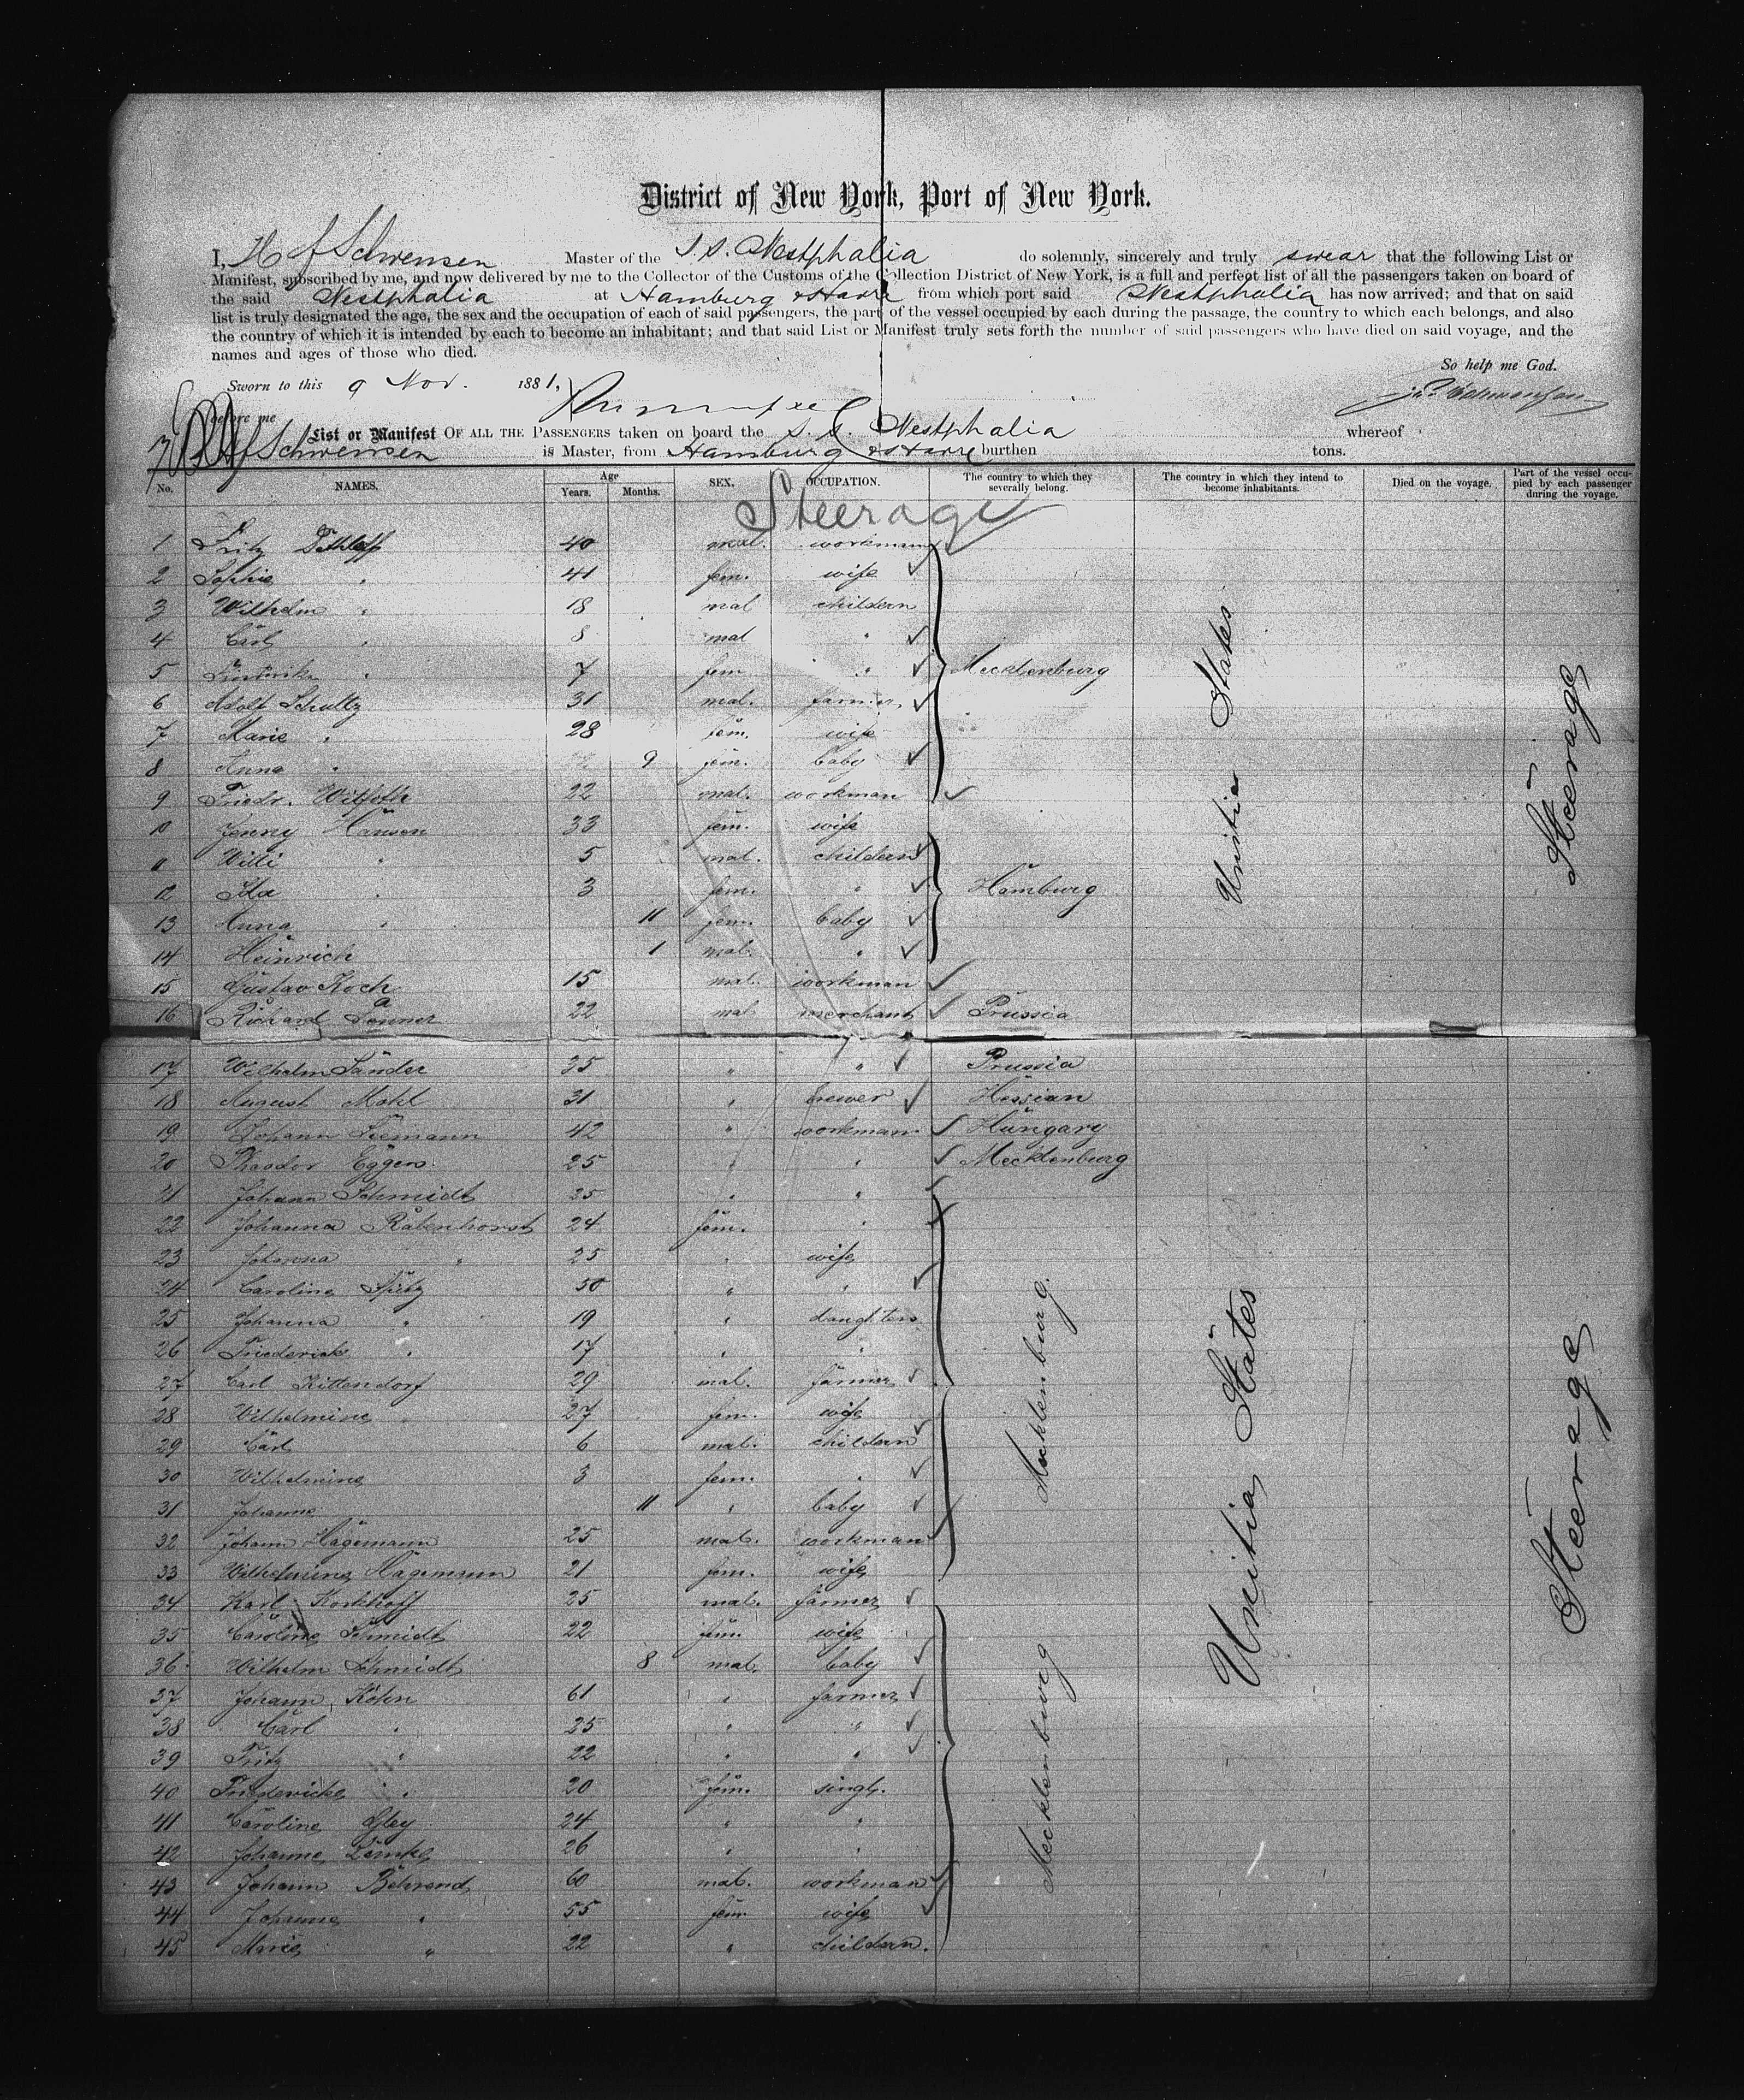 District of New York, Port of New York.
I, H F Schwensen Master of the S. S. Westphalia do solemnly, sincerely and truly swear that the following List or
Manifest, subscribed by me, and now delivered by me to the Collector of the Customs of the Collection District of New York, is a full and perfect list of all the passengers taken on board of
the said Westphalia at Hamburg & Havre from which port said Westphalia has now arrived; and that on said
list is truly designated the age, the sex and the occupation of each of said passengers, the part of the vessel occupied by each during the passage, the country to which each belongs, and also
the country of which it is intended by each to become an inhabitant; and that said List or Manifest truly sets forth the number of said passengers who have died on said voyage, and the
names and ages of those who died.
So help me God.
Sworn to this 9 Nov. 1881,
before me
List or Manifest OF ALL THE PASSENGERS taken on board the S. S. Westphalia whereof
H F Schwensen is Master, from Hamburg & Havre burthen tons.
No. NAMES. Age Years. Months. SEX. OCCUPATION. The country to which they severally belong. The country in which they intend to become inhabitants. Died on the voyage. Part of the vessel occupied by each passenger during the voyage.
Steerage
1 Fritz Dethloff 40 mal. workman
2 Sophie " 41 fem. wife
3 Wilhelm " 18 mal childern
4 Carl " 8 mal "
5 " 7 fem " Mecklenburg
6 Adolf Schultz 31 mal. farmer
7 Marie " 28 fem. wife
8 Anna " 9 fem. baby
9 Friedr. 22 mal. workman
10 Jenny Hansen 33 fem. wife
11 Willi " 5 mal. childern
12 Ida " 3 fem. " Hamburg
13 Anna " 11 fem. baby
14 Heinrich 1 mal. "
15 Gustav Koch 15 mal. workman
16 Richard 22 mal merchant Prussia
United States
Steerage
17 Wilhelm Sander 35 " " Prussia
18 August Mohl 31 " brewer Hessian
19 Johann Seemann 42 " workman Hungary
20 Theodor Eggers 25 " " Mecklenburg
21 Johann Schmidt 25 " "
22 Johanna Rabenhorst 24 fem. "
23 Johanna " 25 " wife
24 Caroline 50 " "
25 Johanna " 19 " daughters
26 Friedericke " 17 " "
27 Carl Kittendorf 29 mal. farmer
28 Wilhelmine " 27 fem. wife
29 Carl 6 mal. childern
30 Wilhelmine 3 fem. "
31 Johanne 11 " baby
32 Johann Hagemann 25 mal. workman
33 Wilhelmine Hagemann 21 fem. wife
34 Karl Korkhoff 25 mal. farmer
35 Caroline Schmidt 22 fem. wife
36 Wilhelm Schmidt 8 mal. baby
37 Johann Köhn 61 " farmer
38 Carl " 25 " "
39 Fritz " 22 " "
40 Friedericke " 20 fem. single.
41 Caroline Gley 24 " "
42 Johanne Lemke 26 " "
43 Johann Behrend 60 mal. workman
44 Johanne " 55 fem. wife
45 Marie " 22 " childern.
Mecklenburg.
Mecklenburg
United States
Steerage